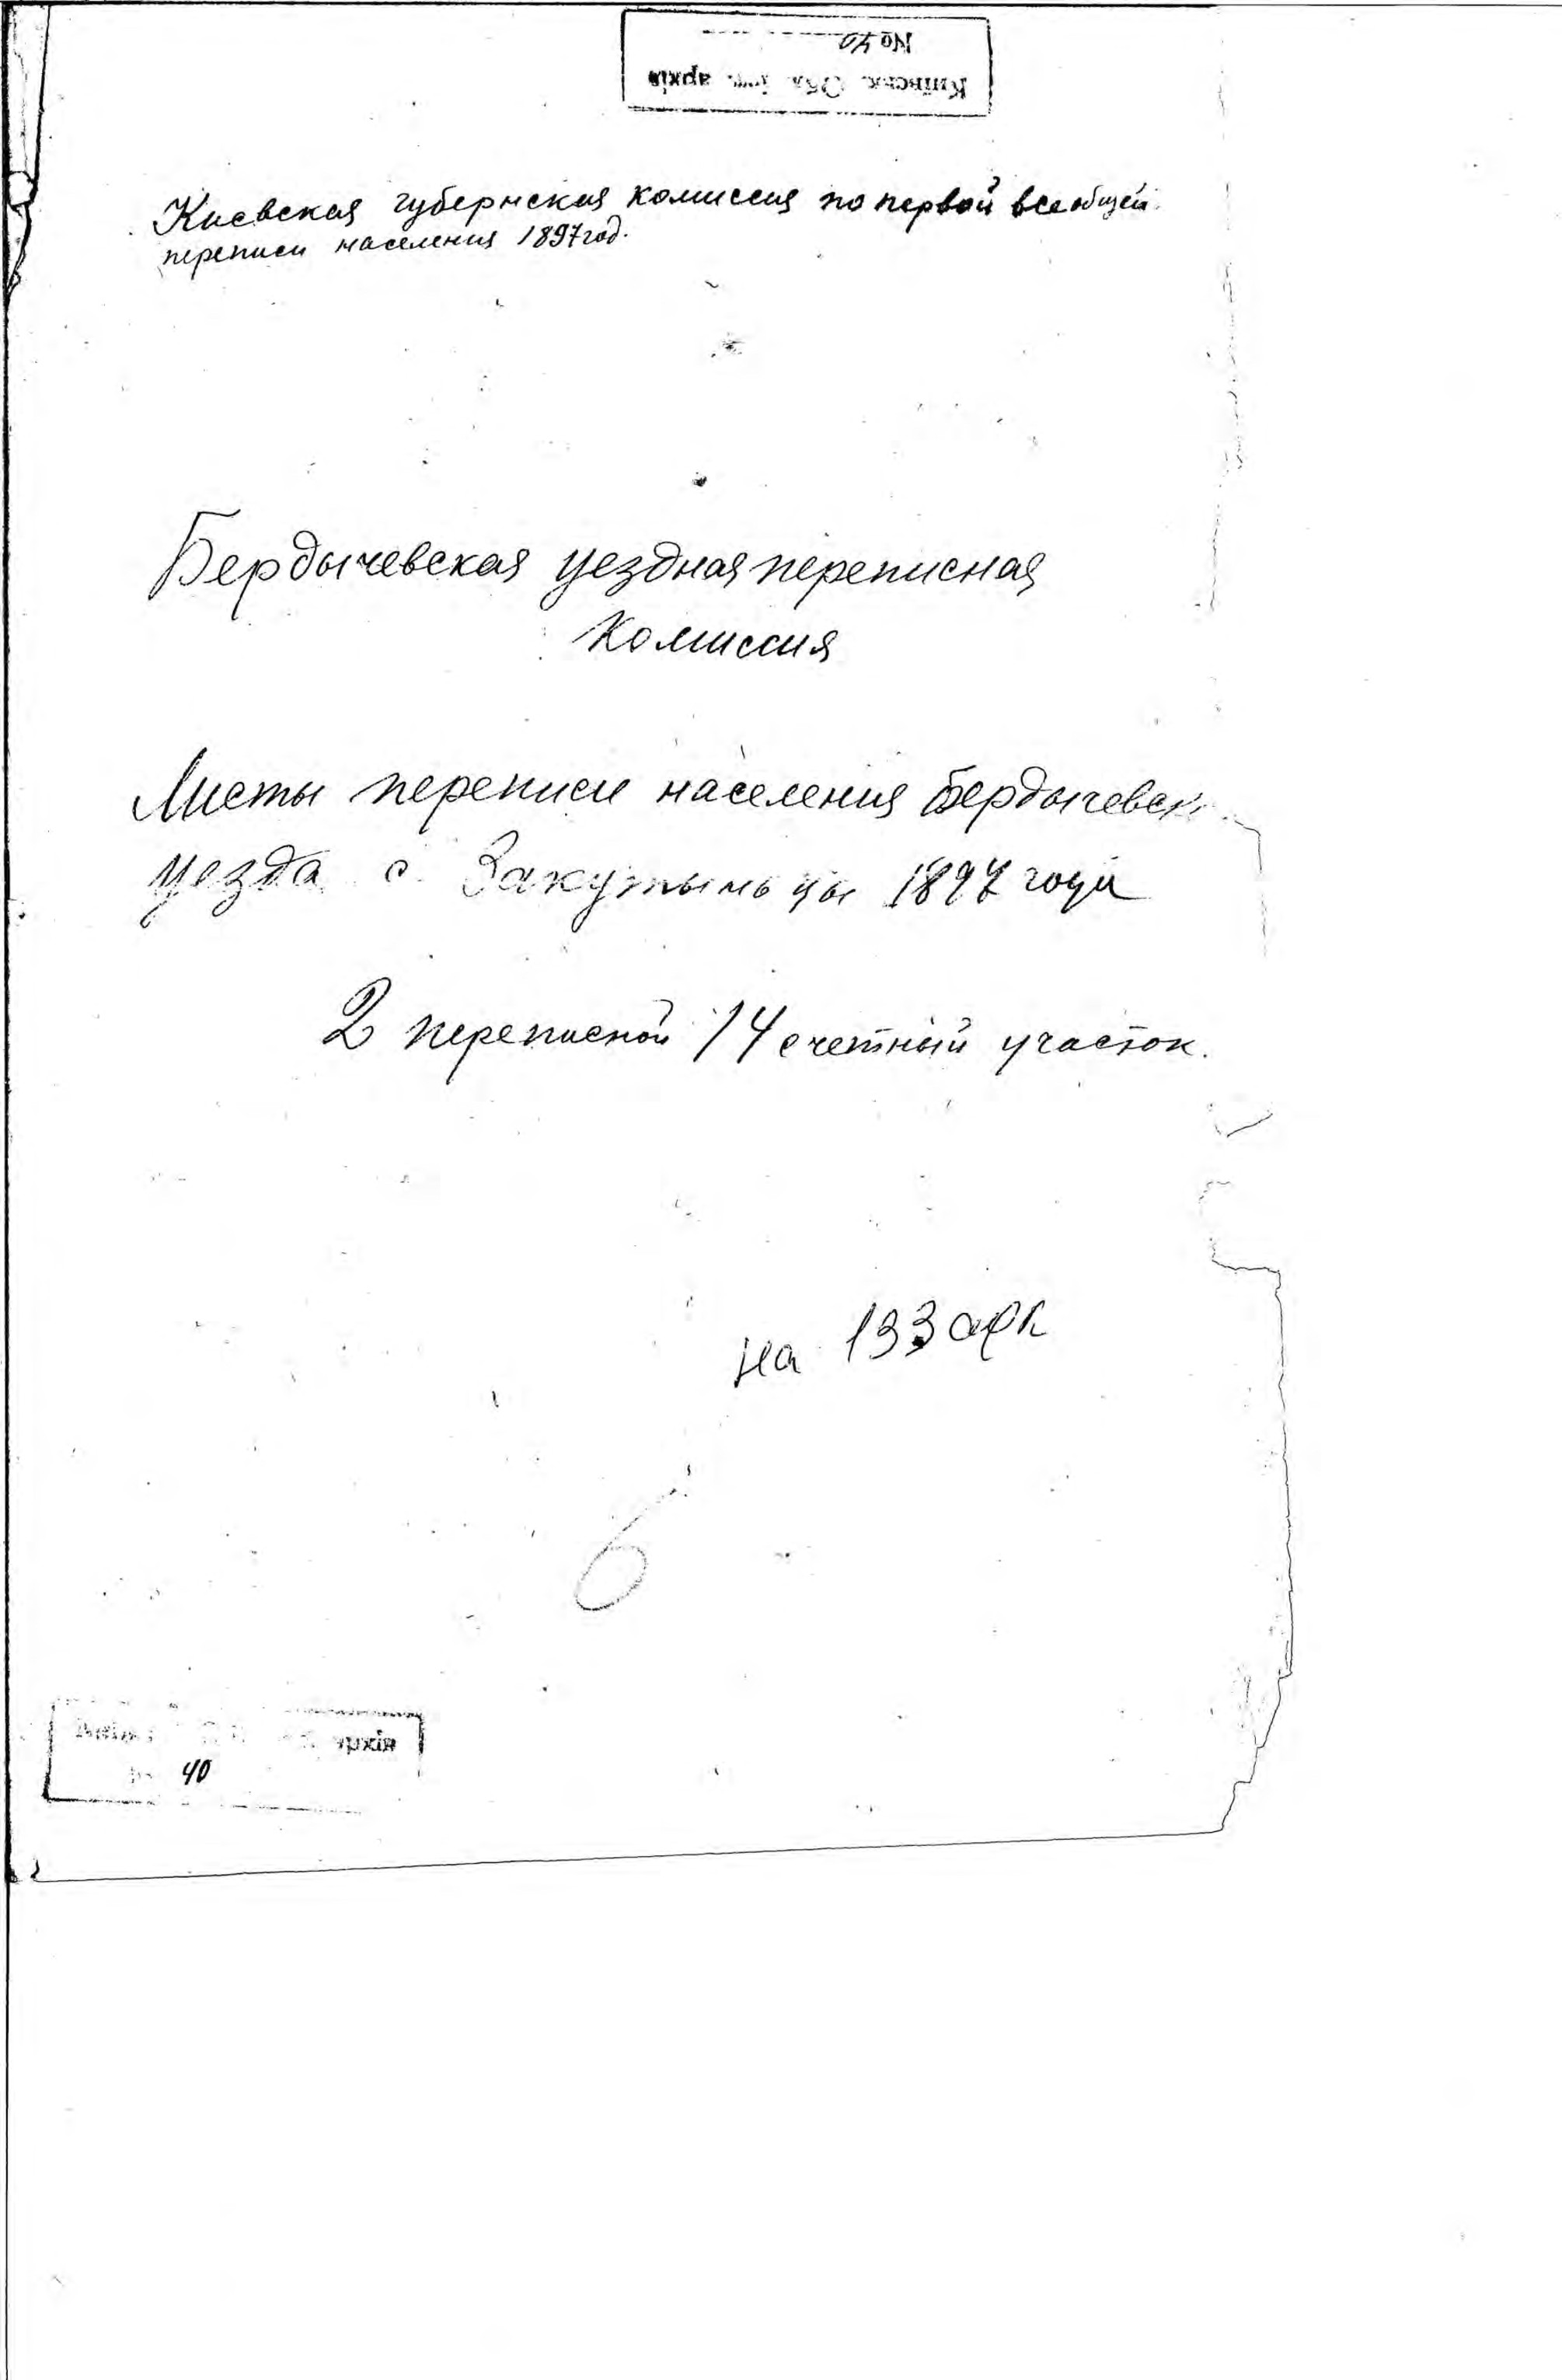 № 40
Київське Обл. архів
Киевская губернская комиссия по первой всеобщей
переписи населения 1897 год.
Бердычевская уездная переписная
Комиссия
Листы переписи населения Бердычевск
уезда с. Закутыньцы 1897 года
2 переписной 14 счетный участок.
на 133 арк
6
архів
40